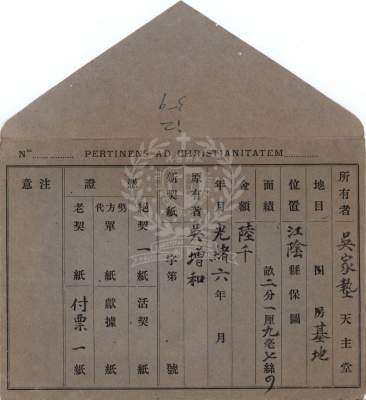 12
59
N° PERTINENS AD CHRISTIANITATEM
所有者 吳家墊 天主堂
地目 田 房 基地
位置 江陰 縣 保 圖
面積 畝二分一厘九毫七絲
金額 陸千
年月 光緒六年 月
原有者 吳增和
新契紙 字第 號
憑證
絕契一紙 活契 紙
方單 紙 獻據 紙
老契 紙 付票一紙
注意